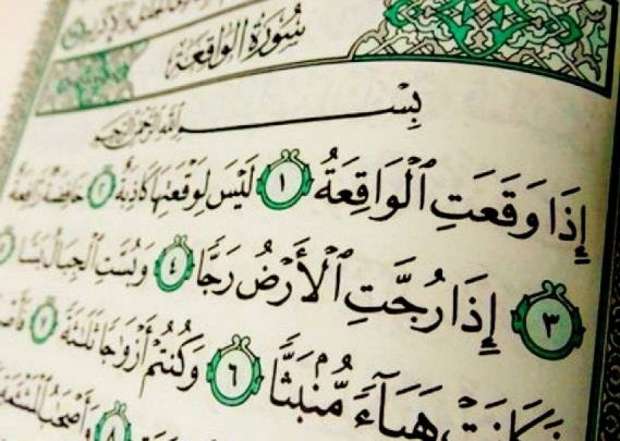 سُورَةُ الْوَاقِعَةِ
بِسْمِ اللَّهِ الرَّحْمَٰنِ الرَّحِيمِ
إِذَا وَقَعَتِ الْوَاقِعَةُ ١ لَيْسَ لِوَقْعَتِهَا كَاذِبَةٌ ٢ خَافِضَةٌ رَافِعَةٌ
٣ إِذَا رُجَّتِ الْأَرْضُ رَجًّا ٤ وَبُسَّتِ الْجِبَالُ بَسًّا
فَكَانَتْ هَبَاءً مُنْبَثًّا ٦ وَكُنْتُمْ أَزْوَاجًا ثَلَاثَةً ٧
٨ وَأَصْحَابُ